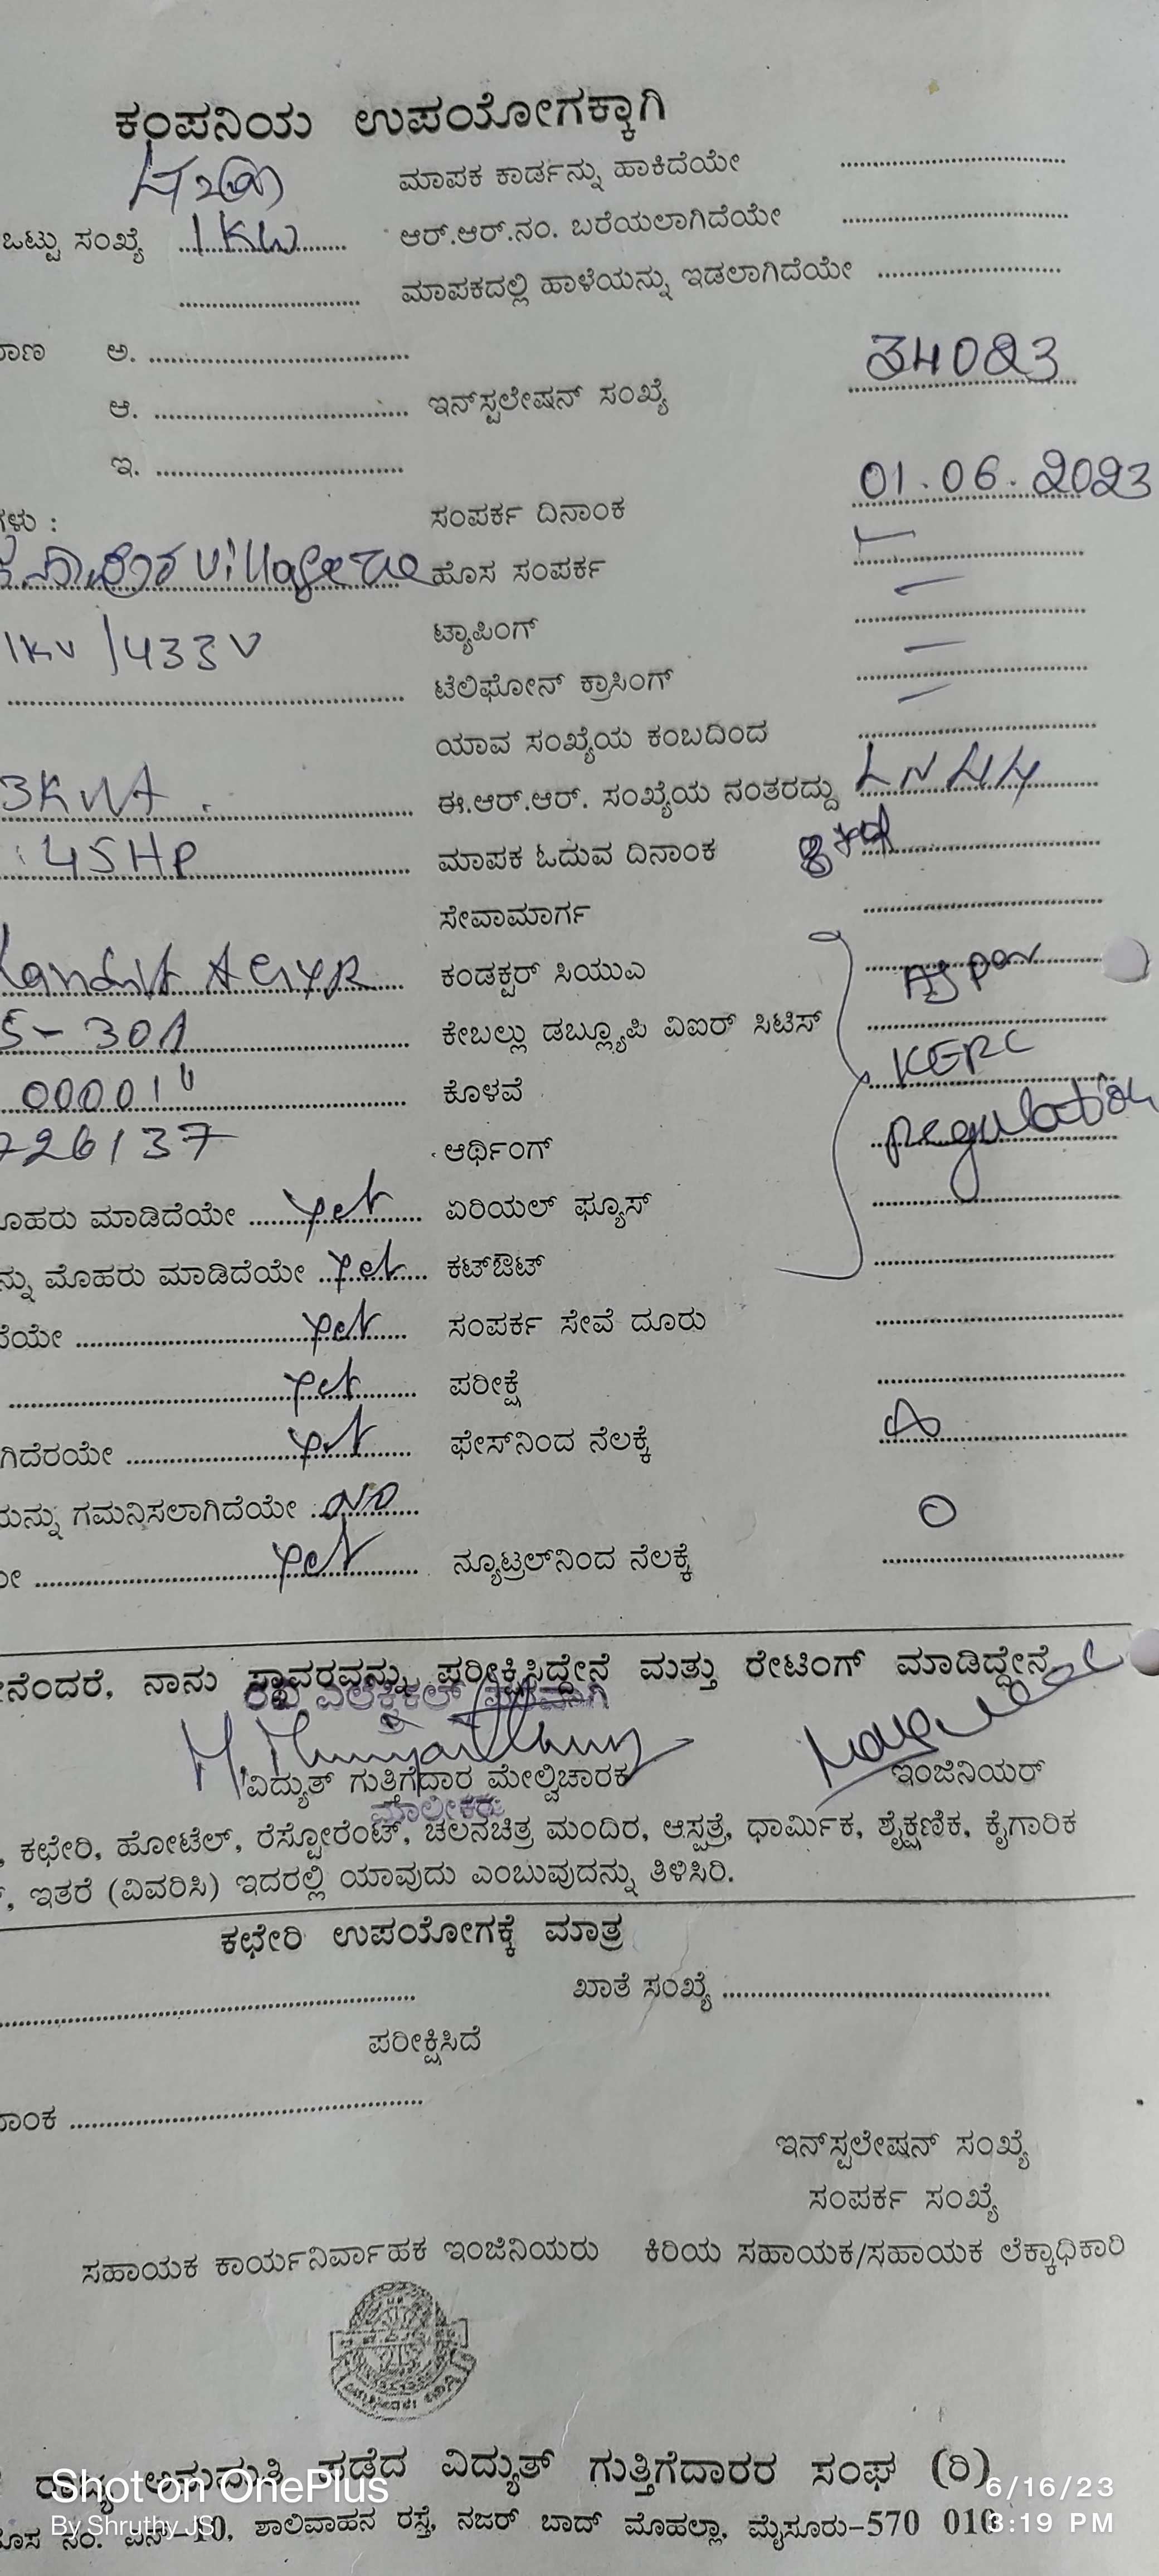 ಕಂಪನಿಯ ಉಪಯೋಗಕ್ಕಾಗಿ
ಮಾಪಕ ಕಾರ್ಡನ್ನು ಹಾಕಿದೆಯೇ
ಒಟ್ಟು ಸಂಖ್ಯೆ 1KW ಆರ್.ಆರ್.ನಂ. ಬರೆಯಲಾಗಿದೆಯೇ
ಮಾಪಕದಲ್ಲಿ ಹಾಳೆಯನ್ನು ಇಡಲಾಗಿದೆಯೇ
ಅ.
34023
ಆ. ಇನ್‌ಸ್ಟಲೇಷನ್ ಸಂಖ್ಯೆ
ಇ.
01.06.2023
ಸಂಪರ್ಕ ದಿನಾಂಕ
village ಹೊಸ ಸಂಪರ್ಕ
1KV/433V ಟ್ಯಾಪಿಂಗ್
ಟೆಲಿಫೋನ್ ಕ್ರಾಸಿಂಗ್
ಯಾವ ಸಂಖ್ಯೆಯ ಕಂಬದಿಂದ
3KVA ಈ.ಆರ್.ಆರ್. ಸಂಖ್ಯೆಯ ನಂತರದ್ದು
45HP ಮಾಪಕ ಓದುವ ದಿನಾಂಕ
ಸೇವಾಮಾರ್ಗ
ಕಂಡಕ್ಟರ್ ಸಿಯುಎ As per
5-30A ಕೇಬಲ್ಲು ಡಬ್ಲ್ಯೂಪಿ ವಿಐರ್ ಸಿಟಿಸ್ KERC
ಕೊಳವೆ regulation
726137 ಆರ್ಥಿಂಗ್
ಮಾಡಿದೆಯೇ yes ಏರಿಯಲ್ ಫ್ಯೂಸ್
ಮೊಹರು ಮಾಡಿದೆಯೇ yes ಕಟ್‌ಔಟ್
yes ಸಂಪರ್ಕ ಸೇವೆ ದೂರು
yes ಪರೀಕ್ಷೆ
yes ಫೇಸ್‌ನಿಂದ ನೆಲಕ್ಕೆ
ಗಮನಿಸಲಾಗಿದೆಯೇ NO
0
yes ನ್ಯೂಟ್ರಲ್‌ನಿಂದ ನೆಲಕ್ಕೆ
ನೆಂದರೆ, ನಾನು ಸ್ಥಾವರವನ್ನು ಪರೀಕ್ಷಿಸಿದ್ದೇನೆ ಮತ್ತು ರೇಟಿಂಗ್ ಮಾಡಿದ್ದೇನೆ
ವಿದ್ಯುತ್ ಗುತ್ತಿಗೆದಾರ ಮೇಲ್ವಿಚಾರಕ ಇಂಜಿನಿಯರ್
ಮಾಲೀಕರು
, ಕಛೇರಿ, ಹೋಟೆಲ್, ರೆಸ್ಟೋರೆಂಟ್, ಚಲನಚಿತ್ರ ಮಂದಿರ, ಆಸ್ಪತ್ರೆ, ಧಾರ್ಮಿಕ, ಶೈಕ್ಷಣಿಕ, ಕೈಗಾರಿಕ
, ಇತರೆ (ವಿವರಿಸಿ) ಇದರಲ್ಲಿ ಯಾವುದು ಎಂಬುವುದನ್ನು ತಿಳಿಸಿರಿ.
ಕಛೇರಿ ಉಪಯೋಗಕ್ಕೆ ಮಾತ್ರ
ಖಾತೆ ಸಂಖ್ಯೆ
ಪರೀಕ್ಷಿಸಿದೆ
ಇನ್‌ಸ್ಟಲೇಷನ್ ಸಂಖ್ಯೆ
ಸಂಪರ್ಕ ಸಂಖ್ಯೆ
ಸಹಾಯಕ ಕಾರ್ಯನಿರ್ವಾಹಕ ಇಂಜಿನಿಯರು ಕಿರಿಯ ಸಹಾಯಕ/ಸಹಾಯಕ ಲೆಕ್ಕಾಧಿಕಾರಿ
ಅನುಮತಿ ಪಡೆದ ವಿದ್ಯುತ್ ಗುತ್ತಿಗೆದಾರರ ಸಂಘ (ರಿ)
Shot on OnePlus 6/16/23
By Shruthy JS 3:19 PM
ನಂ. ಎನ್-10, ಶಾಲಿವಾಹನ ರಸ್ತೆ, ನಜರ್ ಬಾದ್ ಮೊಹಲ್ಲಾ, ಮೈಸೂರು-570 010